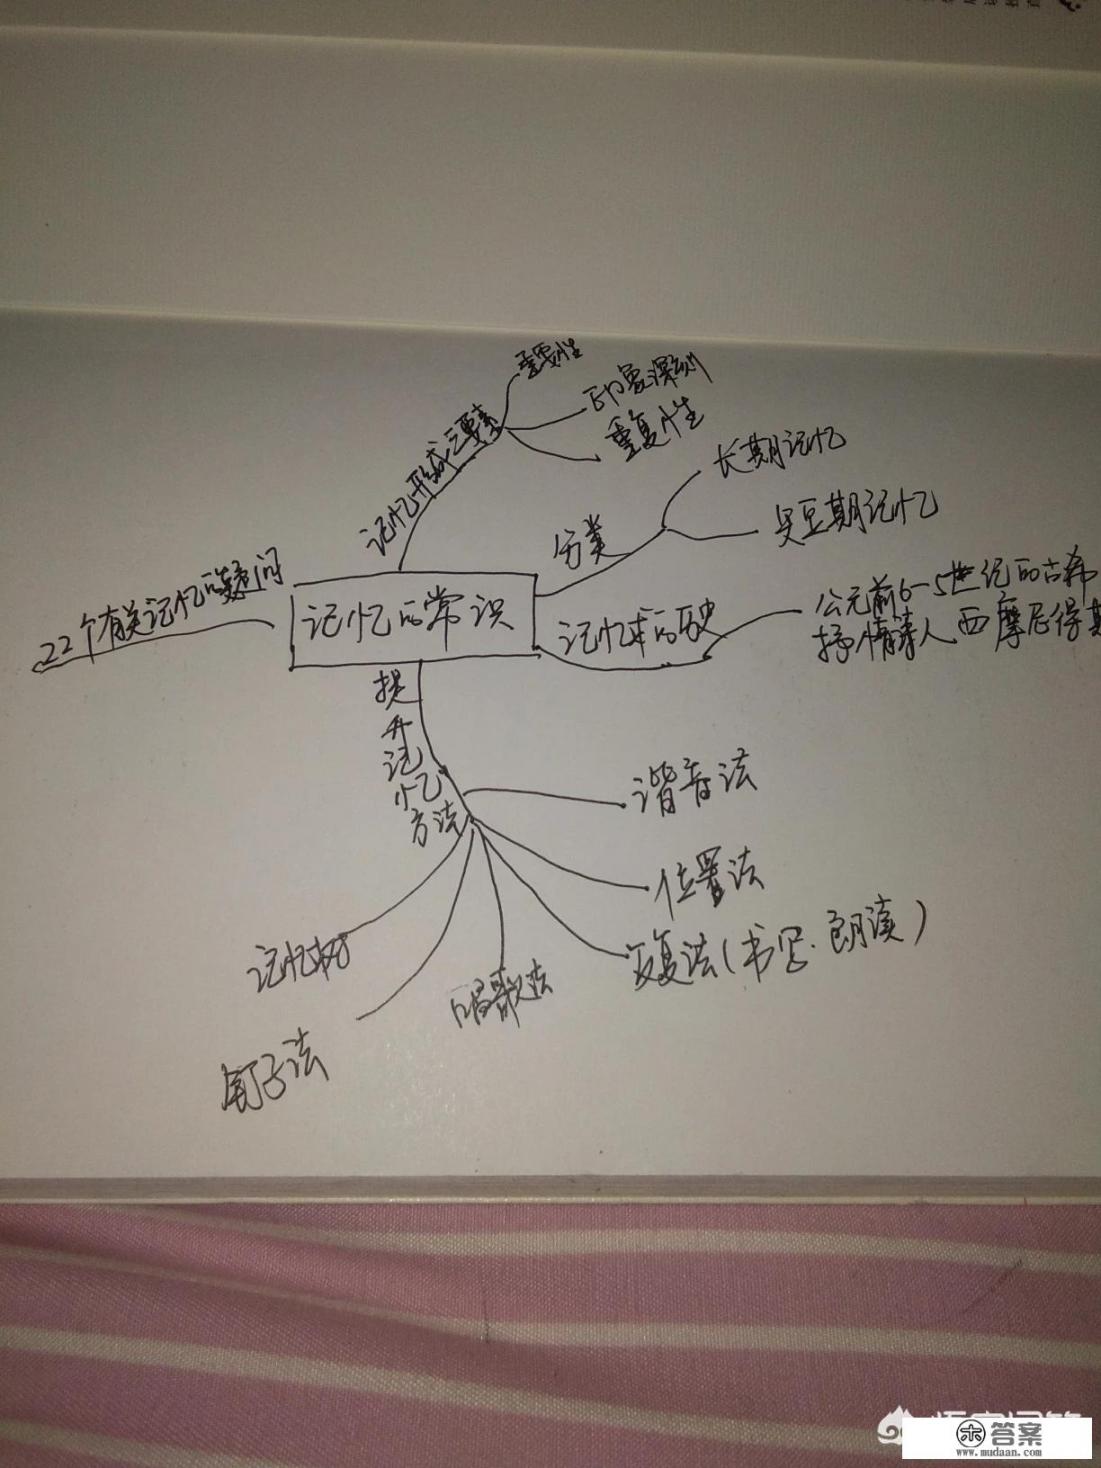 重要性
印象深刻
重复性
记忆形成三要素
长期记忆
分类
短期记忆
22个有关记忆的疑问
记忆的常识
记忆术的历史
公元前6-5世纪的古希
抒情诗人西摩尼得其
提升记忆方法
谐音法
位置法
反复法(书写.朗读)
记忆树
唱歌法
钉子法
答案
www.mudaan.com